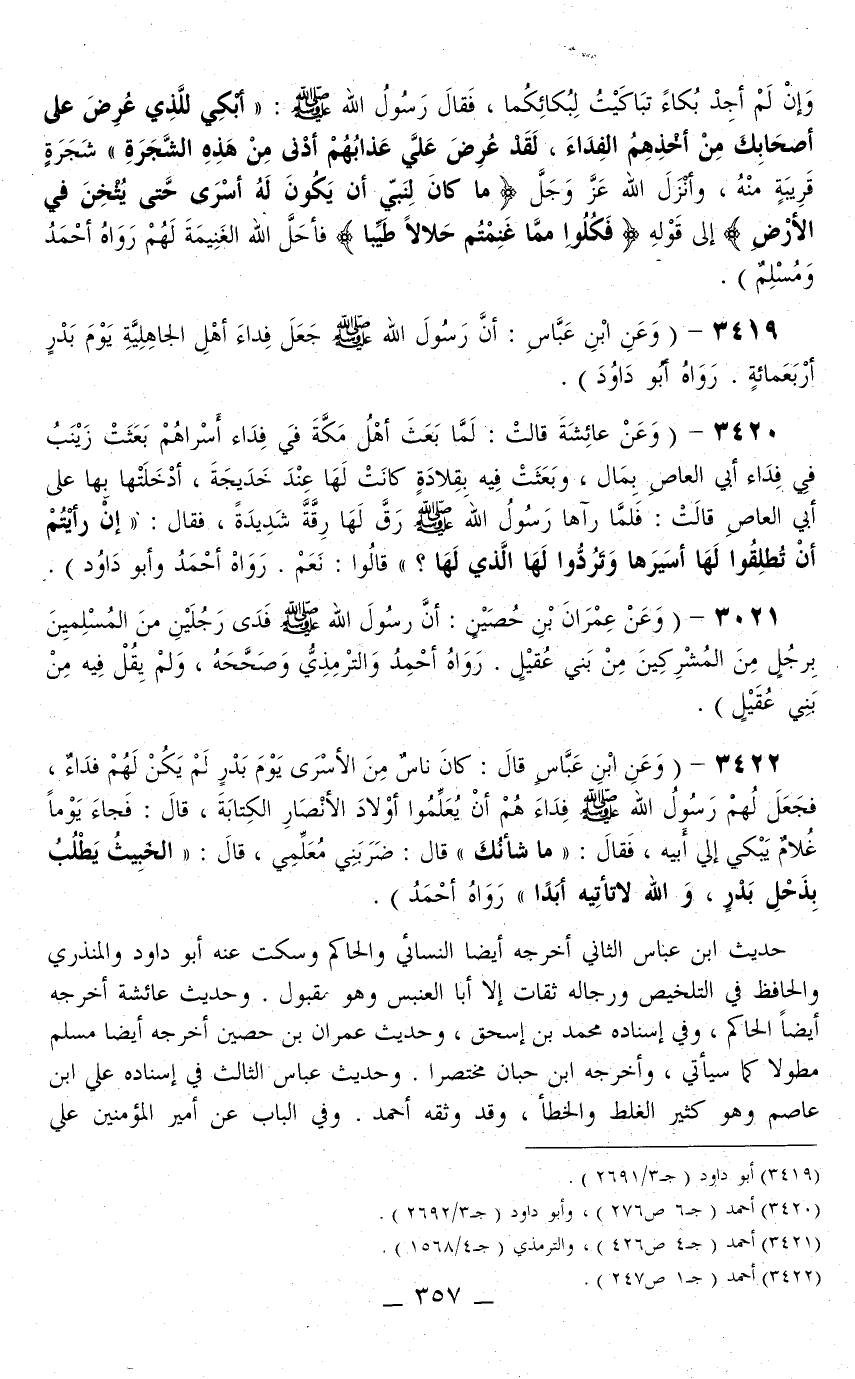 وَإنْ لَمْ أجِدْ بُكاءً تبَاكَيْتُ لِبُكائِكُما ، فَقالَ رَسُولُ الله ﷺ : « أبْكِي للَّذِي عُرِضَ على
أصحَابِكَ مِنْ أخْذِهِمُ الفِدَاءَ ، لَقَدْ عُرِضَ عَلَيَّ عَذابُهُمْ أدْنى مِنْ هَذِهِ الشَّجَرَةِ » شَجَرَةٍ
قَرِيبَةٍ منْهُ ، وأنْزَلَ الله عَزَّ وَجَلَّ ﴿ ما كانَ لِنَبيّ أن يَكُونَ لَهُ أسْرَى حَّتى يُثْخِنَ في
الأرْضِ ﴾ إلى قَوْلِهِ ﴿ فَكُلُوا ممَّا غَنِمْتُم حَلالاً طَيِّبا ﴾ فأحَلَّ الله الغَنِيمَةَ لَهُمْ رَوَاهُ أحْمَدُ
وَمُسْلِمٌ ) .
٣٤١٩ – ( وَعَنِ ابْنِ عَبَّاسٍ : أنَّ رَسُولَ الله ﷺ جَعَلَ فِداءَ أهْلِ الجاهِليَّةِ يَوْمَ بَدْرٍ
أرْبَعَمائةٍ . رَوَاهُ أبُو دَاوُدَ ) .
٣٤٢٠ – ( وَعَنْ عائِشَةَ قالتْ : لَمَّا بَعَثَ أهْلُ مَكَّةَ في فِدَاء أَسْراهُمْ بَعَثَتْ زَيْنَبُ
في فِدَاء أبي العاصِ بِمَال ، وبَعَثَتْ فِيه بِقِلادَةٍ كانَتْ لَهَا عِنْدَ خَدِيجَةَ ، أدْخَلَتْها بِها على
أبي العاصِ قالَتْ : فَلمَّا رَآها رَسُولُ الله ﷺ رَقَّ لَهَا رِقَّةً شَدِيدَةً ، فقال : « إنْ رأيْتُمْ
أنْ تُطلِقُوا لَهَا أسيَرَها وَتَرُدُّوا لَهَا الَّذي لَهَا ؟ » قالُوا : نَعَمْ . رَوَاهْ أحْمَدُ وأبو دَاوُد ) .
٣٠٢١ – ( وَعَنْ عِمْرَانَ بْنِ حُصَيْنٍ : أنَّ رسُولَ الله ﷺ فَدَى رَجُلَيْنِ منَ المُسْلِمينَ
بِرجُلٍ مِنَ المُشْرِكِينَ مِنْ بَني عُقيْلٍ . رَوَاهُ أحْمِدُ وَالتِرْمِذِيُّ وَصَحَّحَهُ ، وَلمْ يِقُلْ فِيه مِنْ
بَنِي عُقَيْلٍ ) .
٣٤٢٢ – ( وَعَنِ ابْنِ عَبَّاسٍ قالَ : كانَ ناسٌ مِنَ الأسْرَى يَوْمَ بَدْرٍ لَمْ يَكُنْ لَهُمْ فداءٌ ،
فجَعَلَ لُهمْ رَسُولُ الله ﷺ فِدَاءَ هُمْ أنْ يُعَلِّمُوا أوْلادَ الأنْصَارِ الكِتابَةَ ، قالَ : فَجاءَ يَوْماً
غُلامٌ يَبْكي إلي أَبيه ، فَقالَ : « ما شأنُكَ » قال : ضَرَبَنِي مُعَلِّمِي ، قالَ : « الخَبِيثُ يَطْلُبُ
بِذَحْلِ بَدْرٍ ، وَ الله لاتأتِيه أبَدًا » رَوَاهُ أحْمَدُ ) .
حديث ابن عباس الثاني أخرجه أيضا النسائي والحاكم وسكت عنه أبو داود والمنذري
والحافظ في التلخيص ورجاله ثقات إلا أبا العنبس وهو مقبول . وحديث عائشة أخرجه
أيضاً الحاكم ، وفي إسناده محمد بن إسحق ، وحديث عمران بن حصين أخرجه أيضا مسلم
مطولا كما سيأتي ، وأخرجه ابن حبان مختصرا . وحديث عباس الثالث في إسناده علي ابن
عاصم وهو كثير الغلط والخطأ ، وقد وثقه أحمد . وفي الباب عن أمير المؤمنين علي
(٣٤١٩) أبو داود ( جـ٢٦٩١/٣ ) .
(٣٤٢٠) أحمد ( جـ٦ ص٢٧٦ ) ، وأبو داود ( جـ٢٦٩٢/٣ ) .
(٣٤٢١) أحمد ( جـ٤ ص٤٢٦ ) ، والترمذي ( جـ١٥٦٨/٤ ) .
(٣٤٢٢) أحمد ( جـ١ ص٢٤٧ ) .
– ٣٥٧ –